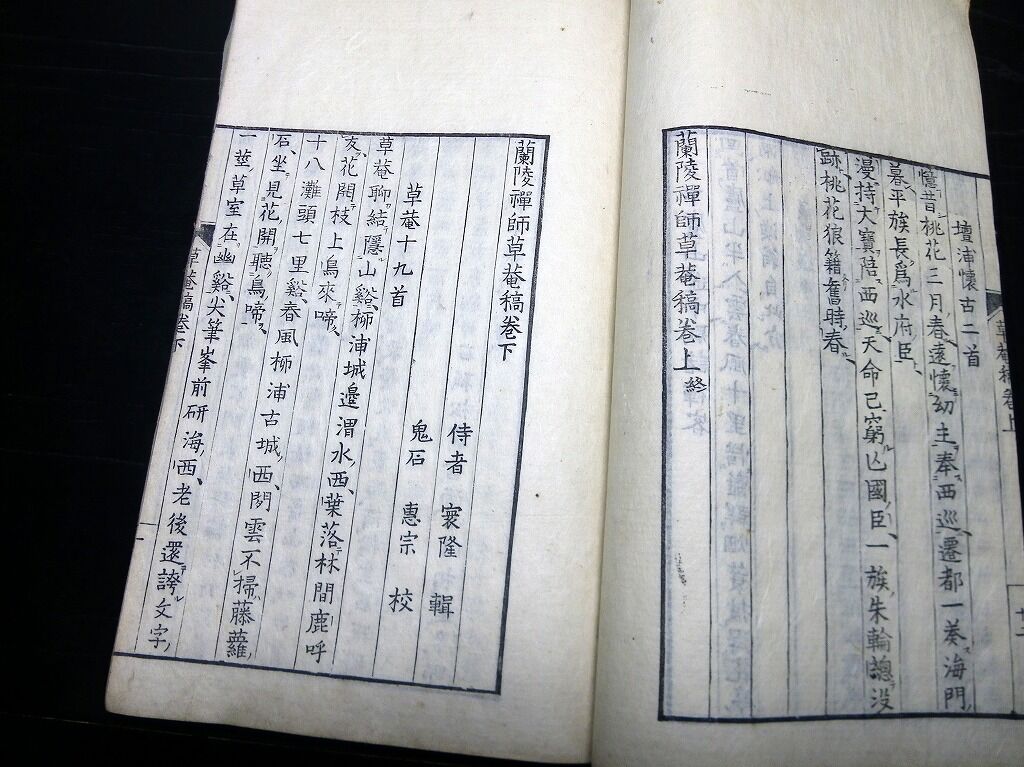 壇浦懷古二首
憶昔桃花三月春遠懷幼主奉西巡遷都一葬海門
暮平族長爲水府臣
漫持大寶陪西巡天命已窮亡國臣一族朱輪總沒
跡桃花狼籍舊時春
蘭陵禪師草菴稿卷上終
草菴稿卷上
蘭陵禪師草菴稿卷下
侍者 寰隆 輯
鬼石 惠宗 校
草菴十九首
草菴聊結隱山谿柳浦城邊渭水西葉落林間鹿呼
友花開枝上鳥來啼
十八灘頭七里谿春風柳浦古城西閑雲不掃藤蘿
石坐見花開聽鳥啼
一莖草室在幽谿尖筆峯前研海西老後還誇文字
草菴稿卷下